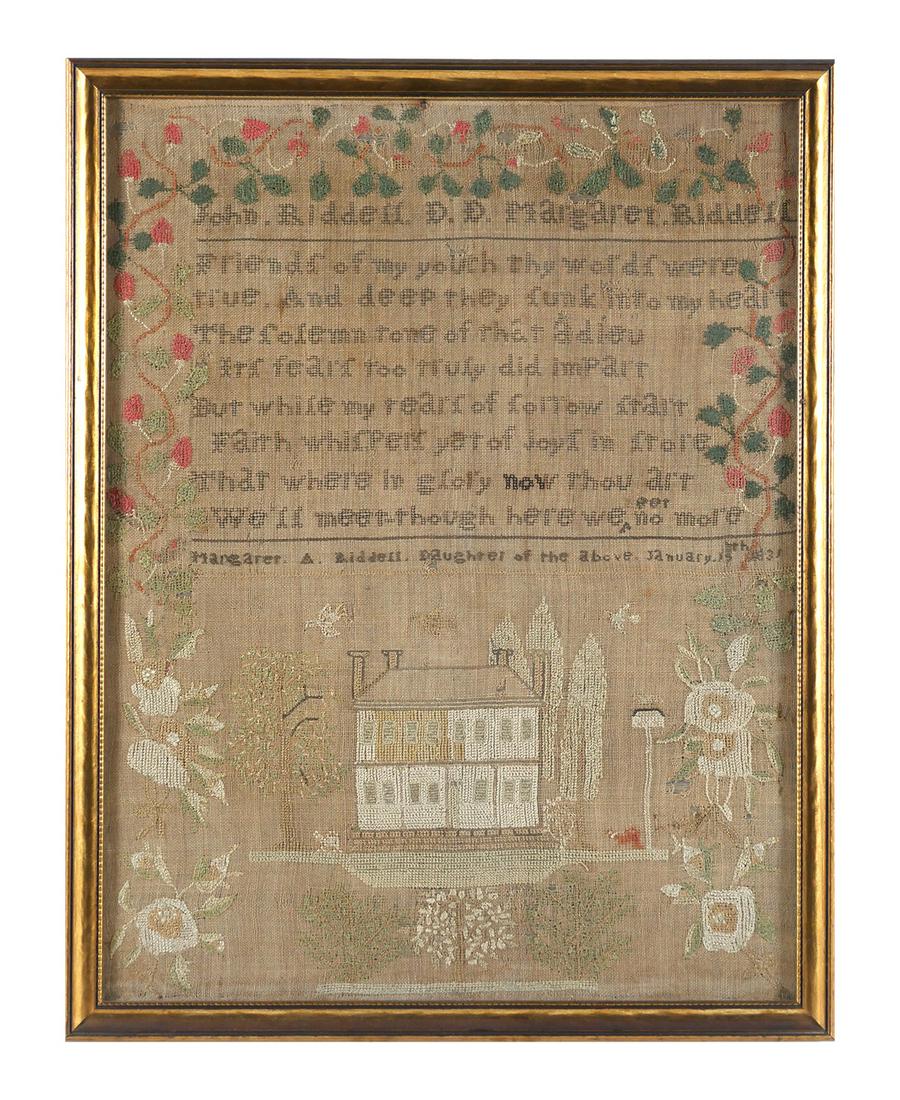 John. Riddell. D. D. Margaret. Riddell
Friendſ of my youth thy wordſ were
true. And deep they ſunk into my heart
The ſolemn tone of that adieu
Itſ fearſ too truly did impart
But while my tearſ of ſorrow ſtart
Faith whiſperſ yet of joyſ in ſtore
That where in glory now thou art
eet
We'll meet-though here we ^ no more
Margaret. A. Riddell. Daughter of the above. January.